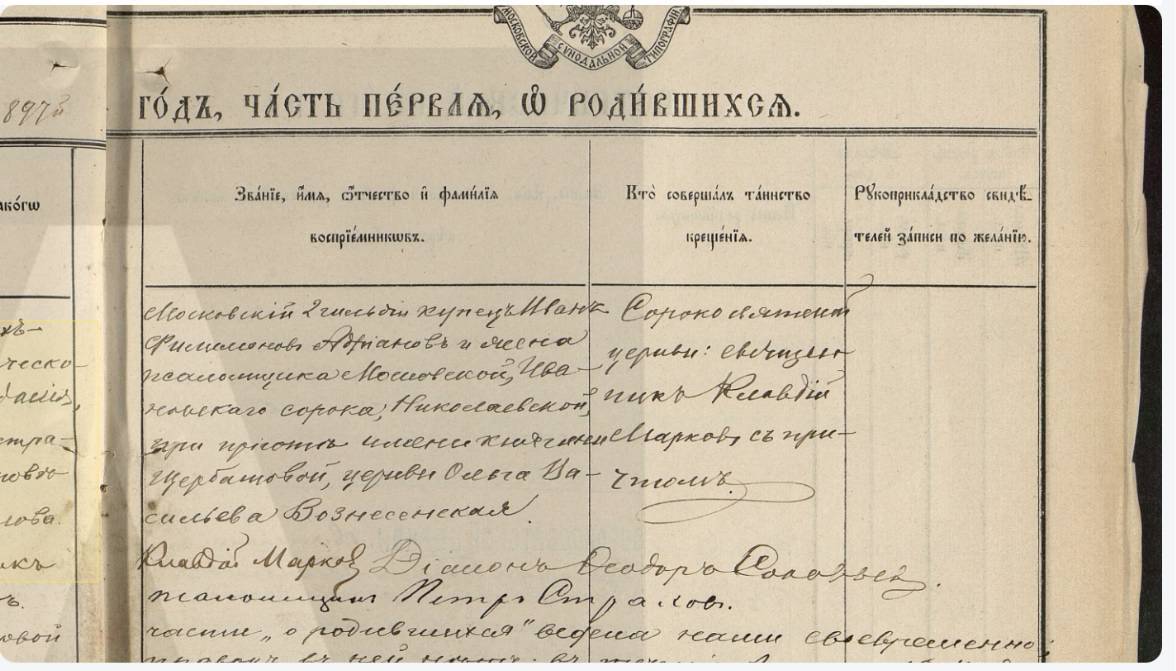 МОСКОВСКОЙ СѴНОДАЛЬНОЙ ТИПОГРАФІИ
897й
ГО́ДЪ, ЧА́СТЬ ПЕ́РВАѦ, Ѽ РОДИ́ВШИХСѦ.
ако́гѡ
Зва́нїе, и́мѧ, ѻ́тчество и҆ фами́лїѧ
воспрїе́мникѡвъ.
Кто̀ соверша́лъ та́инство
креще́нїѧ.
Рꙋкоприкла́дство свидѣ́-
телей за́писи по жела́нїю.
Московскій 2 гильдіи купецъ Иванъ
Филимоновъ Адріановъ и жена
псаломщика Московской, Ива-
новскаго сорока, Николаевской,
при пріютѣ имени княгини
Щербатовой, церкви Ольга Ва-
сильева Вознесенская.
Сорокосвятской
церкви: священ-
никъ Клавдій
Марковъ съ при-
чтомъ.
ческо-
стра-
лова.
Клавдій Марковъ Діаконъ Ѳеодоръ Соловьевъ.
псаломщикъ Петръ Страховъ.
части „о родившихся" ведена нами своевременно;
овой